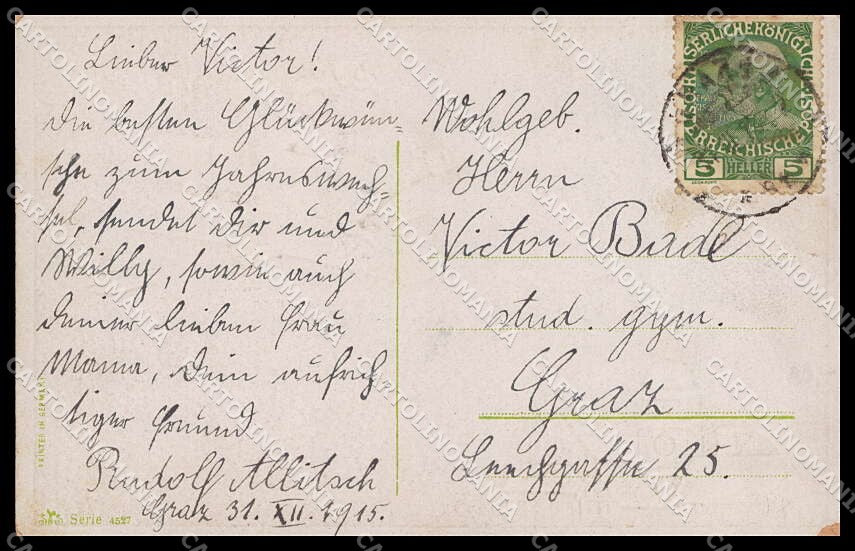 Lieber Victor!
Die besten Glückwün-
sche zum Jahreswech-
sel, sendet Dir und
Willy, sowie auch
deiner lieben Frau
Mama, Dein aufrich
tiger Freund
Rudolf Allitsch
Graz 31. XII. 1915.
Wohlgeb.
Herrn
Victor Badl
stud. gym.
Graz
Leechgasse 25.
KAISERLICHE KÖNIGLICHE
ÖSTERREICHISCHE POST
5 HELLER 5
GRAZ
PRINTED IN GERMANY
Serie 4527
CARTOLINOMANIA